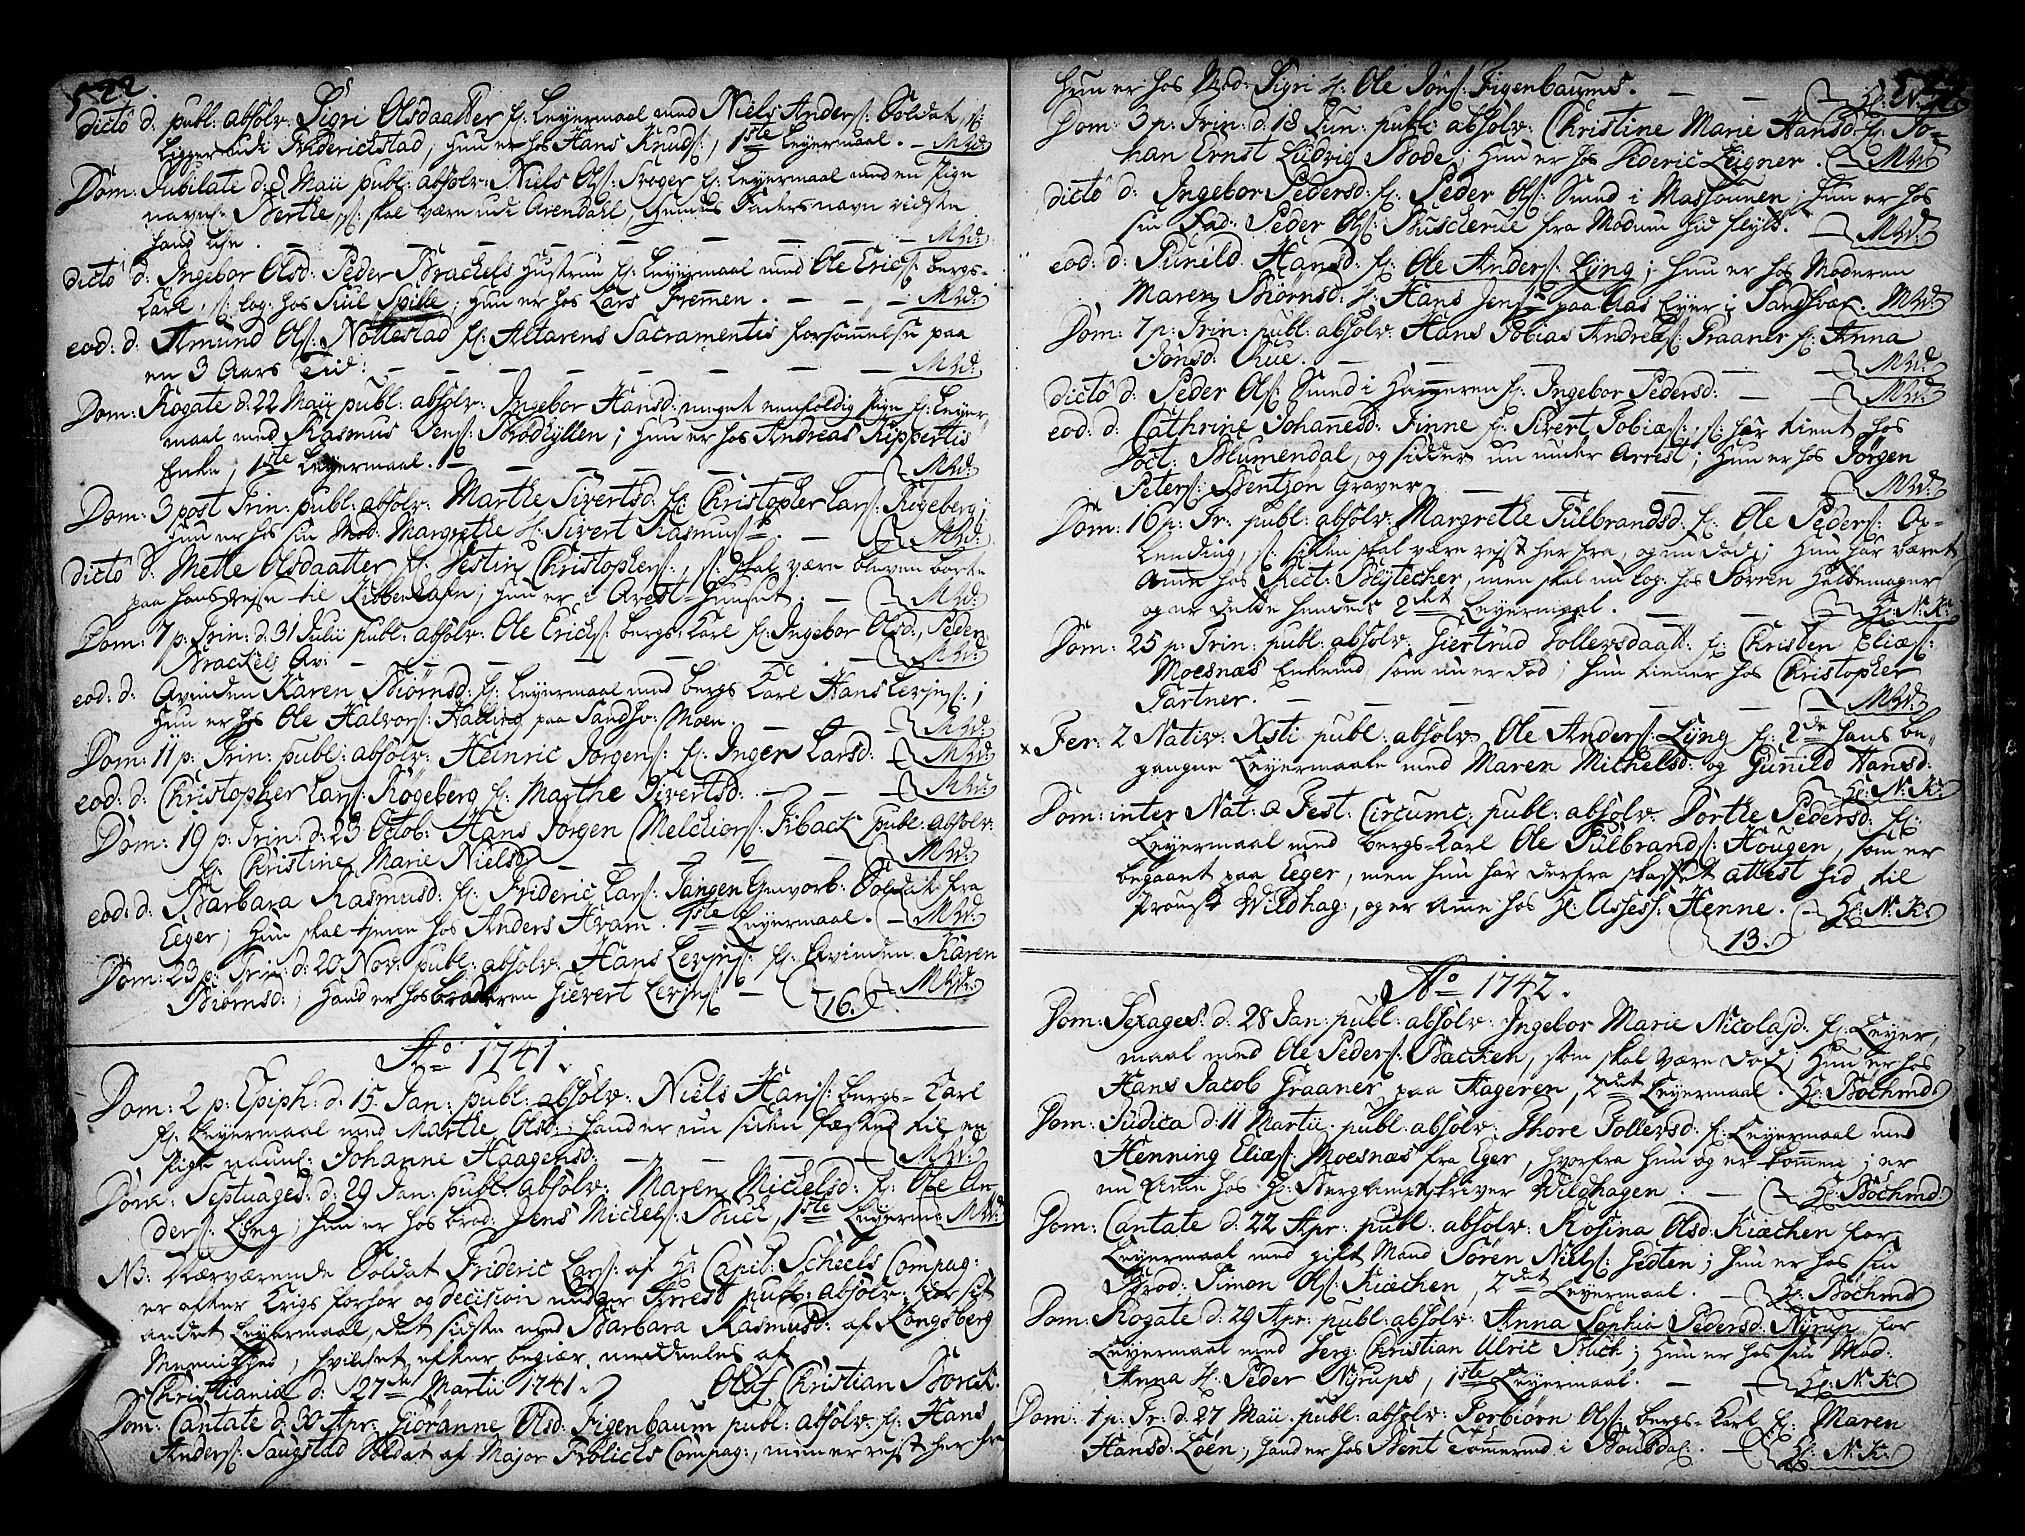 522.
dicto d: publ: absolv: Sigri Olsdaatter f: Leyermaal med Niels Anders: Soldat, s:
ligger udi Friderichstad, hun er hos Hans Knuds:, 1ste Leyermaal. — MWd:
Dom: Jubilate d: 8 Maii publ: absolv: Niels Ols: f: Leyermaal med en Pige
navnl: Berthe, s: skal være udi Arendahl, hendes Faders navn vidste
hand ey. — MWd:
dicto d: Ingebor Olsd: Peder Brackels Hustrue f: Leyermaal med Ole Erics: bergs-
Karl, s: log: hos Juul Spille; hun er hos Lars Fremen. — MWd:
eod: d: Amund Ols: Nottestad f: Altarens Sacramentis forsømmelse paa
en 3 Aars Tid: — MWd:
Dom: Rogate d: 22 Maii publ: absolv: Ingebor Hansd: meget eenfoldig Pige f: Leyer-
maal med Rasmus Jens: hun er hos Andreas Rippertis
Enke, 1ste Leyermaal. — MWd:
Dom: 3 post Trin: publ: absolv: Marthe Sivertsd: f: Christopher Lars: Rogeberg;
hun er hos sin Mod: Margrethe H: Sivert Rasmus: MWd:
dicto d: Mette Olsdaatter f: Jestin Christophers:, s: skal være bleven borte
paa hans Reyse til Kiøbenhafn; hun er i Arest-Huuset. — MWd:
Dom: 7 p: Trin: d: 31 Julii publ: absolv: Ole Erichs: bergs: Karl f: Ingebor Olsd:, Peder
Brackels Qv: — MWd:
eod: d: Qvinden Karen Biørnsd: f: Leyermaal med bergs Karl Hans Levins:;
hun er hos Ole Halvors: Halling paa Sandsv: Moen. — MWd:
Dom: 11 p: Trin: publ: absolv: Heinric Jørgens: f: Inger Larsd: — MWd:
eod: d: Christopher Lars: Rogeberg f: Marthe Sivertsd: — MWd:
Dom: 19 p: Trin: d: 23 Octob: Hans Jørgen Melchiors: Fiback publ: absolv:
f: Christine Marie Nielsd: — MWd:
eod: d: Barbara Rasmusd: f: Frideric Lars: Tangen Gevorb: Soldat fra
Eeger; hun skal tiene hos Anders Aram. 1ste Leyermaal. — MWd:
Dom: 23 p: Trin: d: 20 Nov: publ: absolv: Hans Levins: f: Qvinden Karen
Biørnsd:; hand er hos broderen Sievert Levins: — 16. MWd:
Ao 1741.
Dom: 2 p: Epiph: d: 15 Jan: publ: absolv: Niels Hans: bergs-Karl
f: Leyermaal med Marthe Olsd:; hand er nu siden fæsted til en
Pige navnl: Johanne Haagensd: — MWd:
Dom: Septuages: d: 29 Jan: publ: absolv: Maren Michelsd: f: Ole An-
ders: Lyng; hun er hos brod: Jens Michels: 1ste Leyerm: MWd:
NB: Nærværende Soldat Frideric Lars: af H: Capit: Scheels Compag:
er efter Krigs forhør og decision under Arrest publ: absolv: for sit
andet Leyermaal, det sidste med Barbara Rasmusd: af Kongsberg
Meenighed, hvilket efter begiær meddeeles af
Christiania d: 27de Martii 1741. Oluf Christian Borch.
Dom: Cantate d: 30 Apr: Giøranne Olsd: Figenbaum publ: absolv: f: Hans
Anders: Saugstad Soldat af Major Frølichs Compag:, men er reyst her fra
hun er hos Mod: Sigri H: Ole Jons: Figenbaums. — H: N: K:
Dom: 3 p: Trin: d: 18 Jun: publ: absolv: Christine Marie Hansd: f: Jo-
han Ernst Ludvig Bode; hun er hos Frideric Leigner. MWd:
dicto d: Ingebor Pedersd: f: Peder Ols: Smed i hun er hos
sin Fad: Peder Ols: Buskerue fra Modum hid flyt. — MWd:
eod: d: Gunild Hansd: f: Ole Anders: Lyng; hun er hos Moderen
Maren Biørnsd: H: Hans Jens: paa Aas Eyer i Sandsvær. MWd:
Dom: 7 p: Trin: publ: absolv: Hans Tobias Andreæs: Graaner f: Anna
Jonsd: Rue. — MWd:
dicto d: Peder Ols: Smed i f: Ingebor Pedersd: — MWd:
eod: d: Cathrine Johanesd: Finne f: Sivert Tobiæs:, s: har tient hos
Doct: Blumendal, og sidder nu under Arrest; hun er hos Jørgen
Peters: Bentzon Graver — MWd:
Dom: 16 p: Tr: publ: absolv: Margrethe Gulbrandsd: f: Ole Peders: Op-
lending, s: siden skal være reyst her fra, og nu død; hun har været
Ame hos Rect: Blytecher, men skal nu log: hos Sørren
og er dette hendes 2det Leyermaal. — H: N: K:
Dom: 25 p: Trin: publ: absolv: Giertrud Tollevsdaatt: f: Christen Eliæs:
Moesnæs Enkemd, som nu er død; hun tiener hos Christopher
Gartner. — MWd:
x Fer: 2 Nativ: Xsti publ: absolv: Ole Anders: Lyng f: 2de hans be-
gangne Leyermaale med Maren Michelsd: og Gunild Hansd:
H: N: K:
Dom: inter Nat: & Fest: Circumc: publ: absolv: Dorthe Pedersd: f:
Leyermaal med bergs-Karl Ole Gulbrands: Hougen, som er
begaaet paa Eeger, men hun har derfra skaffet attest hid til
Proust Wildhag:, og er Ame hos H: Assess: Henne. — H: N: K:
13.
Ao 1742.
Dom: Sexages: d: 28 Jan: publ: absolv: Ingebor Marie Nicolajd: f: Leyer-
maal med Ole Peders: Backen, som skal være død; hun er hos
Hans Jacob Graaner paa Hageren, 2det Leyermaal. H: Bochmd:
Dom: Judica d: 11 Martii publ: absolv: Thore Tollevsd: f: Leyermaal med
Henning Eliæs: Moesnæs fra Eger, hvorfra hun og er kommen; er
nu Ame hos H: Bergamptskriver Wildhagen. — H: Bochmd:
Dom: Cantate d: 22 Apr: publ: absolv: Rosina Olsd: Kiøchen for
Leyermaal med gift Mand Søren Niels: Gedten; hun er hos sin
Brod: Simon Ols: Kiøchen, 2det Leyermaal. — H: Bochmd:
Dom: Rogate d: 29 Apr: publ: absolv: Anna Sophia Pedersd: Nyrup for
Leyermaal med Serg: Christian Ulric hun er hos sin Mod:
Anna H: Peder Nyrups, 1ste Leyermaal. — H: N: K:
Dom: 1 p: Tr: d: 27 Maii publ: absolv: Torbiørn Ols: bergs-Karl f: Maren
Hansd: Løen, hand er hos Bent Tømermd i — H: N: K: